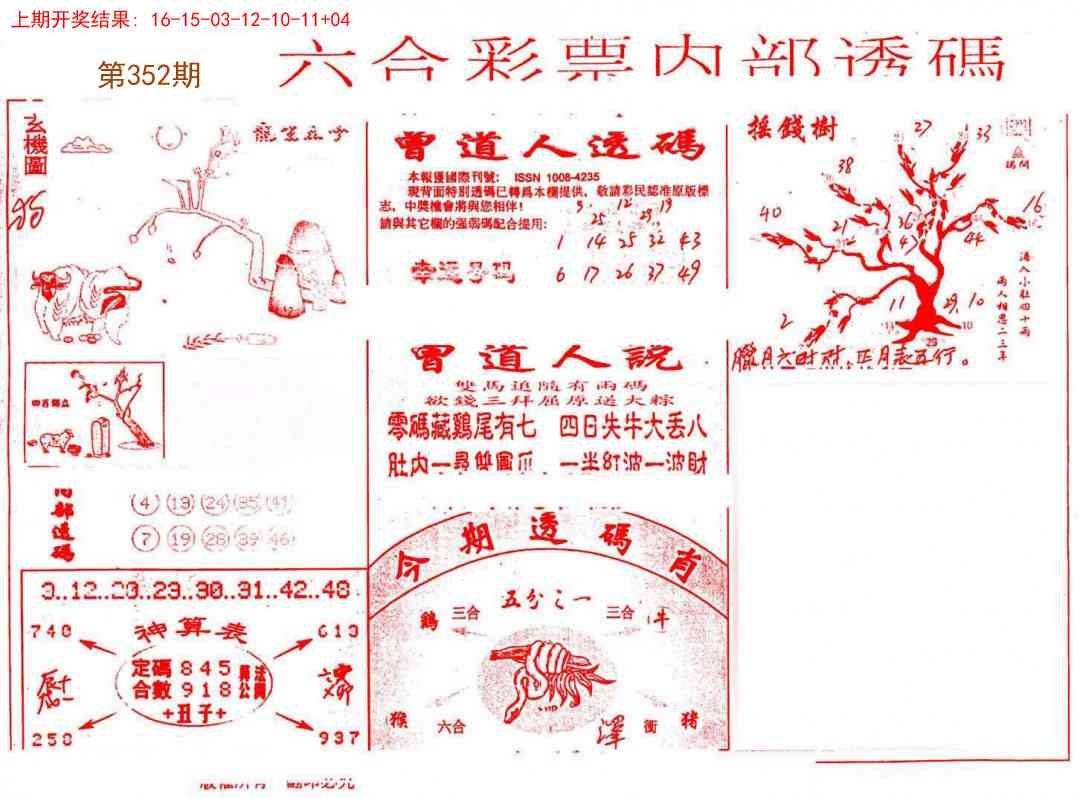 上期开奖结果: 16-15-03-12-10-11+04
第352期
六合彩票内部透碼
玄機圖
曾道人透碼
本報獲國際刊號: ISSN 1008-4235
現背面特別透碼已轉爲本欄提供、敬請彩民認准原版標
志, 中獎機會將與您相伴!
請與其它欄的强弱碼配合提用:
9 12 19
25 29
1 14 25 32 43
幸運号码
6 17 26 37 49
摇錢樹
27
33
38
40
21
36
43
44
16
11
29
10
2
港入小肚四十兩
兩人相思二三年
臘月六时财,正月表五行。
曾道人説
雙馬追隨有兩碼
欲錢三拜屈原送大粽
零碼藏鷄尾有七 四日失牛大丢八
肚内一尋雙圓瓜 一半紅波一波財
内部透碼
4 13 24 35 41
7 19 28 39 46
3..12..20..23..30..31..42..48
神算表
740
613
定碼 845
合數 918
+丑子+
258
937
今期透碼肖
五分之一
鷄 三合 三合 牛
猴 六合 衝 猪
版權所有 翻印必究